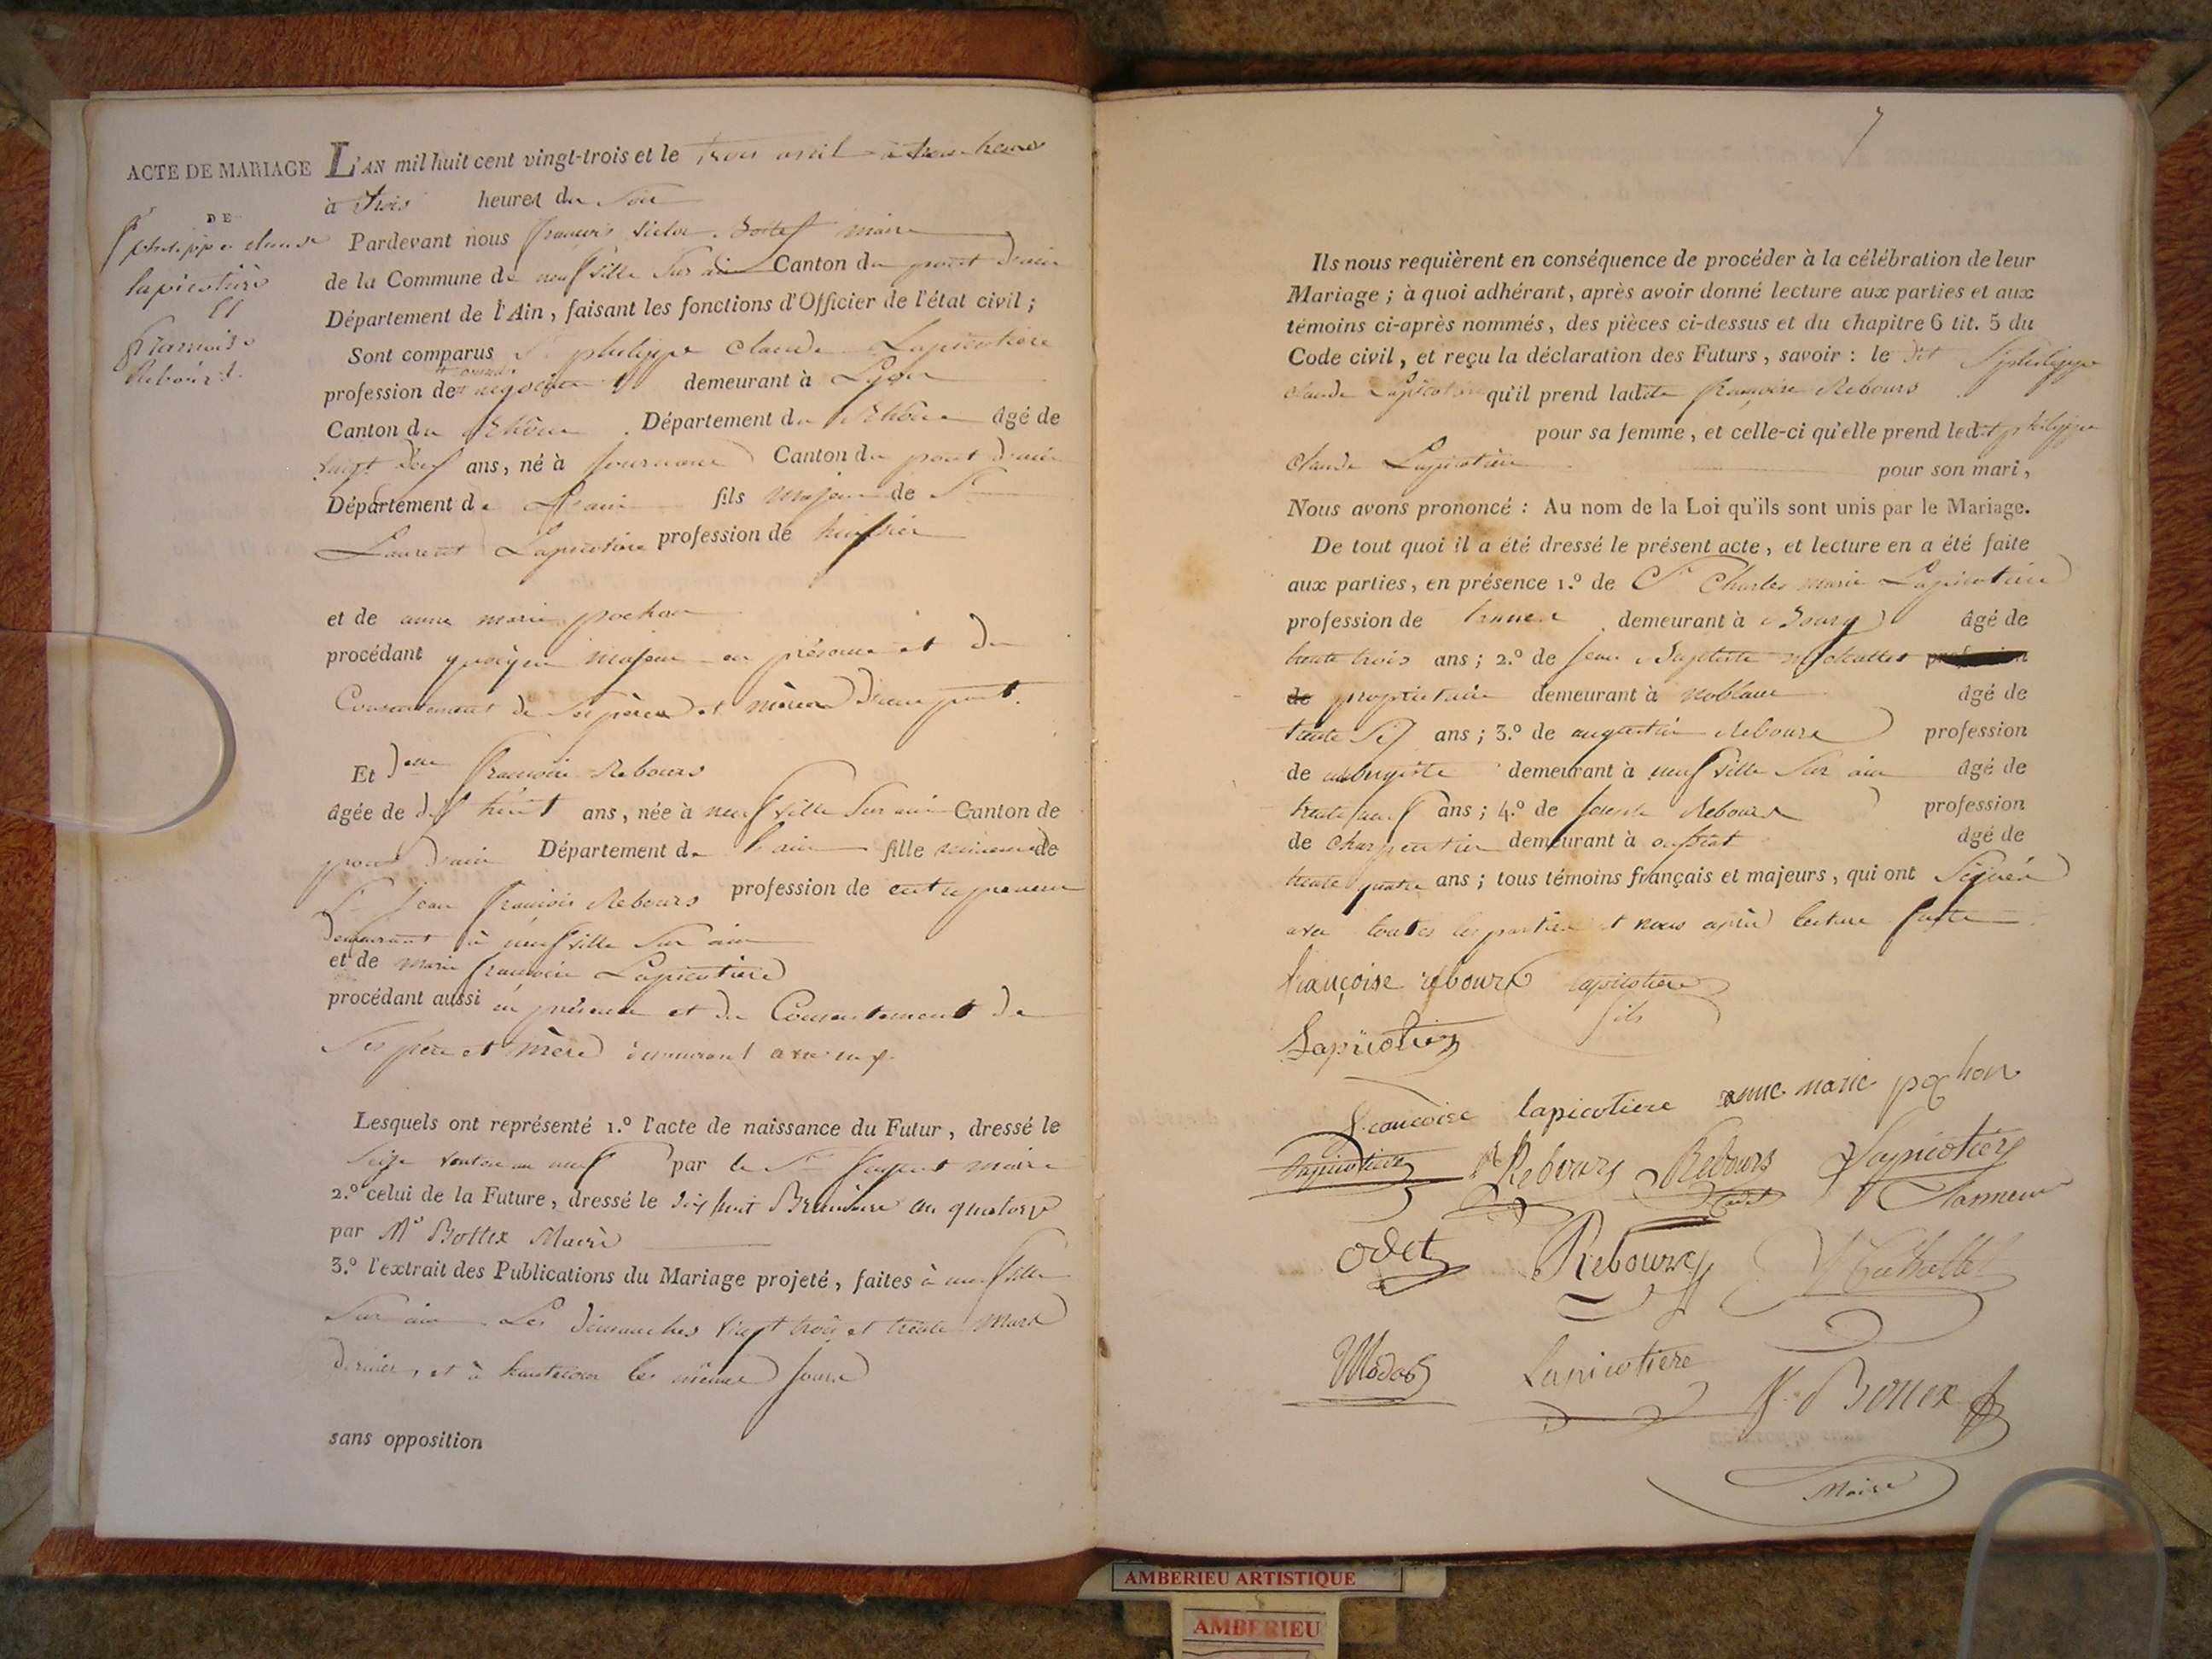 ACTE DE MARIAGE
DE
philippe claude
lapicotière
Et
françoise
Rebours.
L'AN mil huit cent vingt-trois et le trois avril
à trois heures du soir
Pardevant nous françois victor Bottex maire
de la Commune de neufville sur ain Canton du pont d'ain
Département de l'Ain, faisant les fonctions d'Officier de l'état civil ;
Sont comparus Sr philippe claude Lapicotiere
profession de négociant demeurant à Lyon
Canton du Rhône Département du Rhône âgé de
vingt ans, né à journans Canton du pont d'ain
Département de l'ain fils majeur de Sr
Laurent Lapicotiere profession de huissier
et de anne marie pochon
procédant quoique majeur en présence et du
Consentement de ses père et mère d'une part.
Et Delle françoise Rebours
âgée de dix huit ans, née à neufville sur ain Canton de
pont d'ain Département de l'ain fille mineure de
Sr Jean françois Rebours profession de entrepreneur
demeurant à neufville sur ain
et de marie françoise Lapicotiere
procédant aussi en présence et du Consentement de
ses père et mère demeurant avec eux
Lesquels ont représenté 1.º l'acte de naissance du Futur, dressé le
seize ventose an neuf par le Sr maire
2.º celui de la Future, dressé le dix huit Brumaire an quatorze
par Mr Bottex Maire
3.º l'extrait des Publications du Mariage projeté, faites à neufville
sur ain Les dimanches vingt trois et trente Mars
dernier, et à hautecour les mêmes jours
sans opposition
7
Ils nous requièrent en conséquence de procéder à la célébration de leur
Mariage ; à quoi adhérant, après avoir donné lecture aux parties et aux
témoins ci-après nommés, des pièces ci-dessus et du chapitre 6 tit. 5 du
Code civil, et reçu la déclaration des Futurs, savoir : le dit Sr philippe
claude Lapicotiere qu'il prend ladite françoise Rebours
pour sa femme, et celle-ci qu'elle prend ledit philippe
claude Lapicotiere pour son mari,
Nous avons prononcé : Au nom de la Loi qu'ils sont unis par le Mariage.
De tout quoi il a été dressé le présent acte, et lecture en a été faite
aux parties, en présence 1.º de Sr Charles marie Lapicotiere
profession de tanneur demeurant à Bourg âgé de
trente trois ans ; 2.º de Jean Baptiste profession
de propriétaire demeurant à noblane âgé de
trente six ans ; 3.º de augustin Rebours profession
de aubergiste demeurant à neufville sur ain âgé de
trente neuf ans ; 4.º de Rebours profession
de charpentier demeurant à âgé de
trente quatre ans ; tous témoins français et majeurs, qui ont signés
avec toutes les parties et nous après lecture faite
françoise rebours lapicotiere
fils
Lapicotier
francoise lapicotiere anne marie pochon
Lapicotiere Rebours Rebours Lapicotier
cadet Tanneur
odet Rebours
Lapicotiere V. Bottex
Maire
AMBERIEU ARTISTIQUE
AMBERIEU